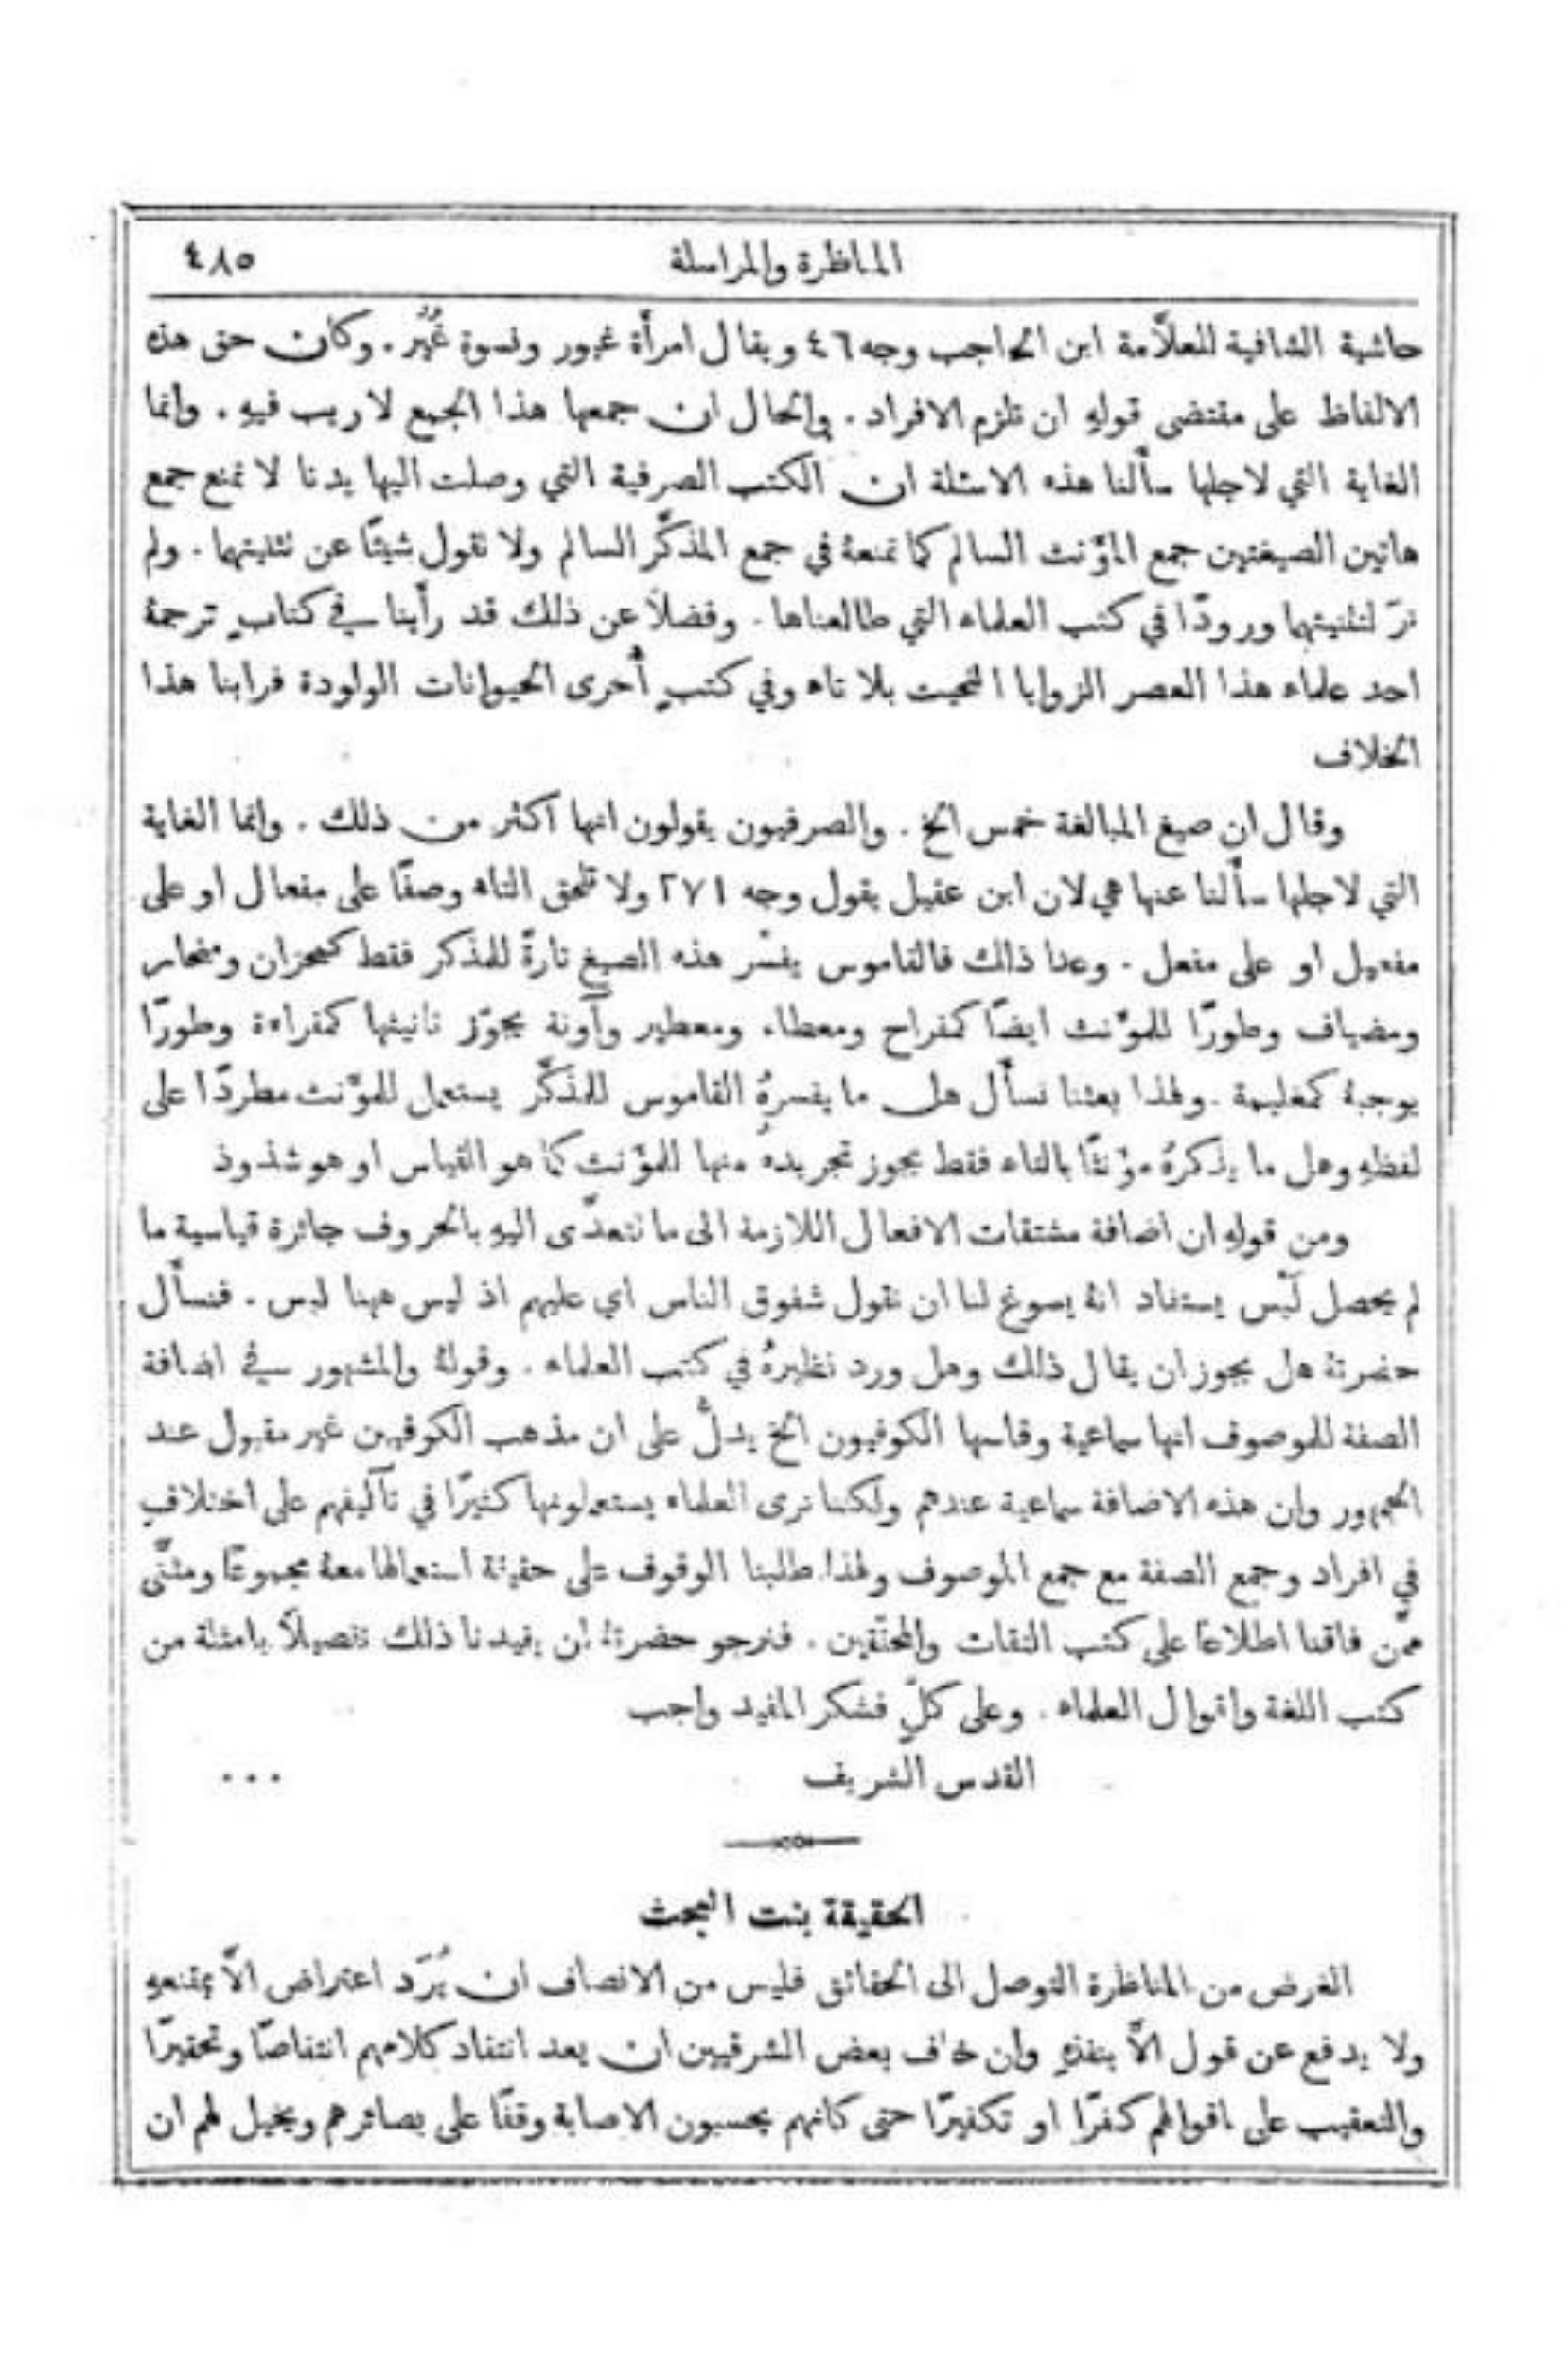 المناظرة والمراسلة
٤٨٥
حاشية الشافية للعلاَّمة ابن الحاجب وجه ٤٦ ويقال امرأة غيور ونسوة غُيُر . وكان حق هذه
الالفاظ على مقتضى قوله ان تلزم الافراد . والحال ان جمعها هذا الجمع لا ريب فيه . وانما
الغاية التي لاجلها سألنا هذه الاسئلة ان الكتب الصرفية التي وصلت اليها يدنا لا تمنع جمع
هاتين الصيغتين جمع المؤنث السالم كما تمنعهُ في جمع المذكَّر السالم ولا تقول شيئًا عن تثنيتهما . ولم
نرَ لتثنيتهما ورودًا في كتب العلماء التي طالعناها . وفضلاً عن ذلك قد رأينا في كتابٍ ترجمهُ
احد علماء هذا العصر الزوايا النحيت بلا تاء وفي كتبٍ أُخرى الحيوانات الولودة فرابنا هذا
الخلاف
وقال ان صيغ المبالغة خمس الخ . والصرفيون يقولون انها اكثر من ذلك . وانما الغاية
التي لاجلها سألنا عنها هي لان ابن عقيل يقول وجه ٢٧١ ولا تلحق التاء وصفًا على مفعال او على
مفعيل او على مفعل . وعدا ذلك فالقاموس يفسّر هذه الصيغ تارةً للمذكر فقط كمحزان ومنحار
ومضياف وطورًا للمؤنث ايضًا كمفراح ومعطاء ومعطير وآونة يجوّز تانيثها كمقراءة وطورًا
يوجبهُ كمغليمة . ولهذا بعثنا نسأل هل ما يفسرهُ القاموس للمذكَّر يستعمل للمؤنث مطردًا على
لفظهِ وهل ما يذكرهُ مؤنثًا بالتاء فقط يجوز تجريدهُ منها للمؤنث كما هو القياس او هو شذوذ
ومن قولهِ ان اضافة مشتقات الافعال اللازمة الى ما تتعدَّى اليهِ بالحروف جائزة قياسية ما
لم يحصل لَبْس يستفاد انهُ يسوغ لنا ان نقول شفوق الناس اي عليهم اذ ليس ههنا لبس . فنسأل
حضرتهُ هل يجوز ان يقال ذلك وهل ورد نظيرهُ في كتب العلماء . وقولهُ والمشهور في اضافة
الصفة للموصوف انها سماعية وقاسها الكوفيون الخ يدلُّ على ان مذهب الكوفيين غير مقبول عند
الجمهور وان هذه الاضافة سماعية عندهم ولكننا نرى العلماء يستعملونها كثيرًا في تآليفهم على اختلافٍ
في افراد وجمع الصفة مع جمع الموصوف ولهذا طلبنا الوقوف على حقيقة استعمالها معهُ مجموعًا ومثنًّى
ممَّن فاقنا اطلاعًا على كتب الثقات والمحقّقين . فنرجو حضرتهُ ان يفيدنا ذلك تفصيلاً بامثلة من
كتب اللغة واقوال العلماء . وعلى كلٍّ فشكر المفيد واجب
القدس الشريف
...
الحقيقة بنت البحث
الغرض من المناظرة التوصل الى الحقائق فليس من الانصاف ان يُرَد اعتراض الاَّ بمقنعهِ
ولا يدفع عن قول الاَّ بنفذهِ وان خاف بعض الشرقيين ان يعد انتقاد كلامهم انتقاصًا وتحقيرًا
والتعقيب على اقوالهم كفرًا او تكفيرًا حتى كانهم يحسبون الاصابة وقفًا على بصائرهم ويخيل لهم ان